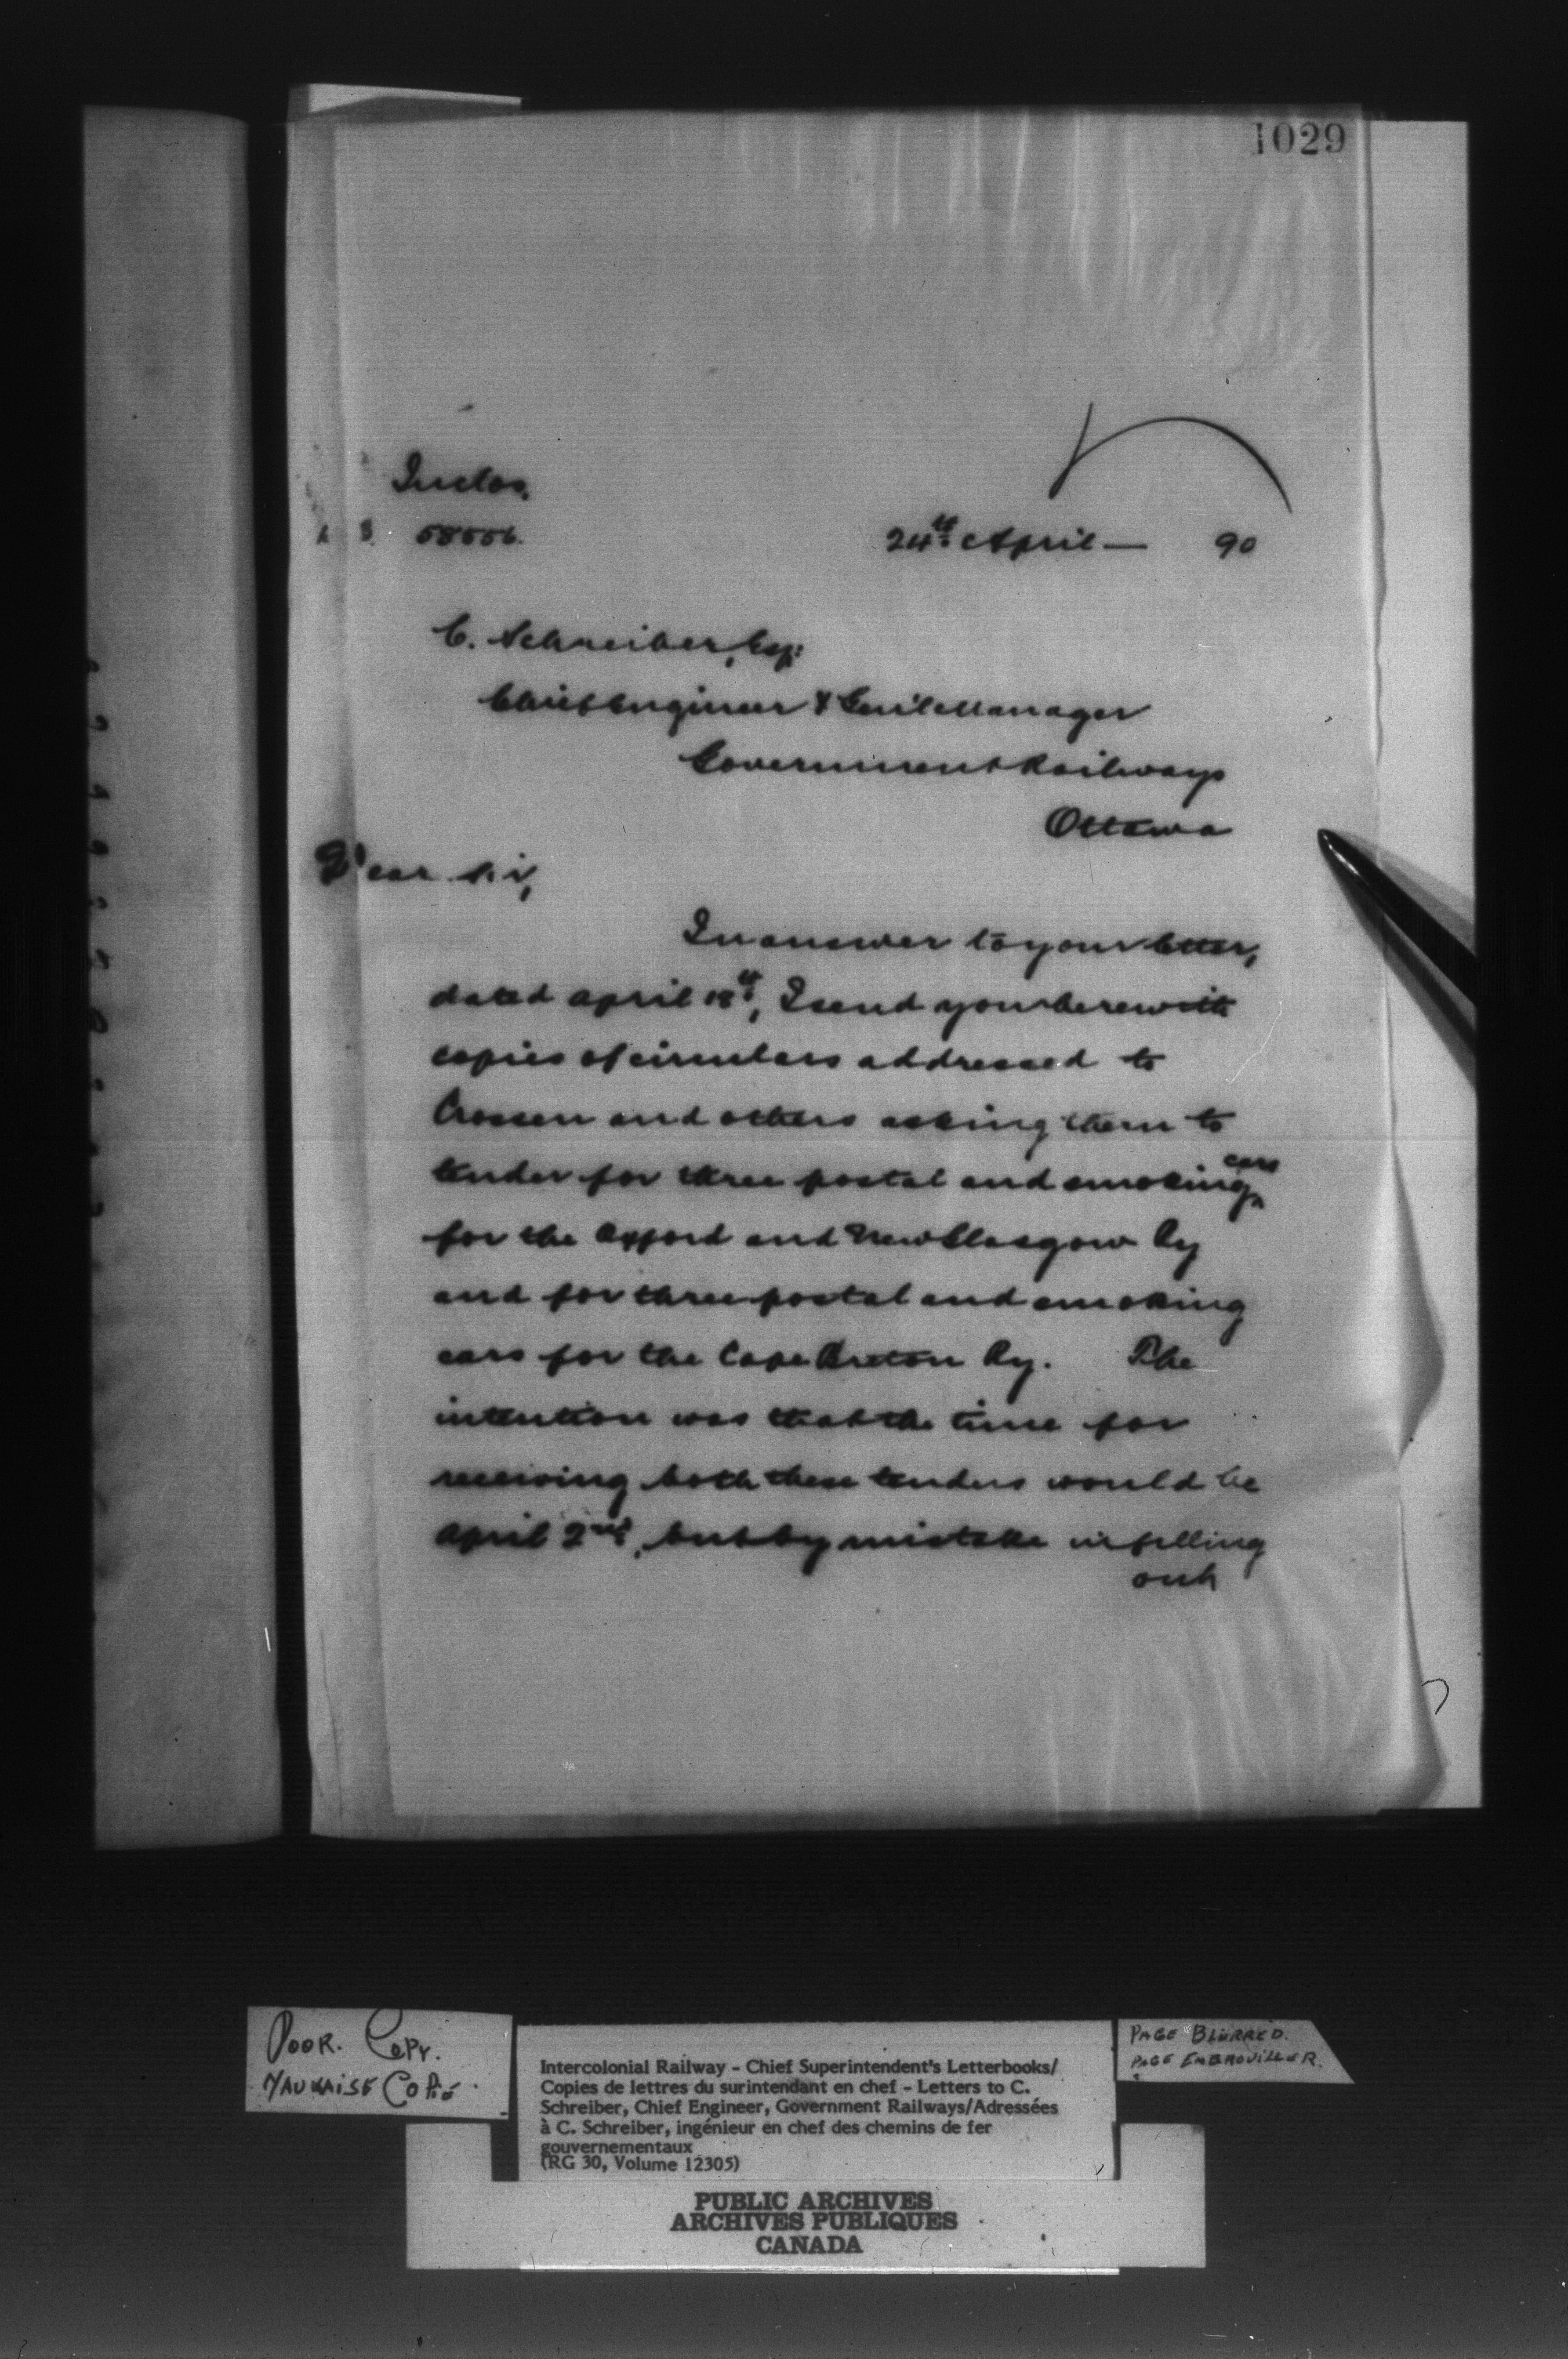 1029
Inclos.
58556.
24th April — 90
C. Schreiber, Esq:
Chief Engineer & Gen'l Manager
Government Railways
Ottawa
Dear Sir,
In answer to your letter,
dated April 18th, I send you herewith
copies of circulars addressed to
Crossen and others asking them to
tender for three postal and smoking cars
for the Oxford and New Glasgow Ry
and for three postal and smoking
cars for the Cape Breton Ry. The
intention was that the time for
receiving both these tenders would be
April 2nd, but by mistake in filling
out
POOR. COPY.
MAUVAISE COPIE.
Intercolonial Railway - Chief Superintendent's Letterbooks/
Copies de lettres du surintendant en chef - Letters to C.
Schreiber, Chief Engineer, Government Railways/Adressées
à C. Schreiber, ingénieur en chef des chemins de fer
gouvernementaux
(RG 30, Volume 12305)
PAGE BLURRED.
PAGE EMBROUILLER.
PUBLIC ARCHIVES
ARCHIVES PUBLIQUES
CANADA